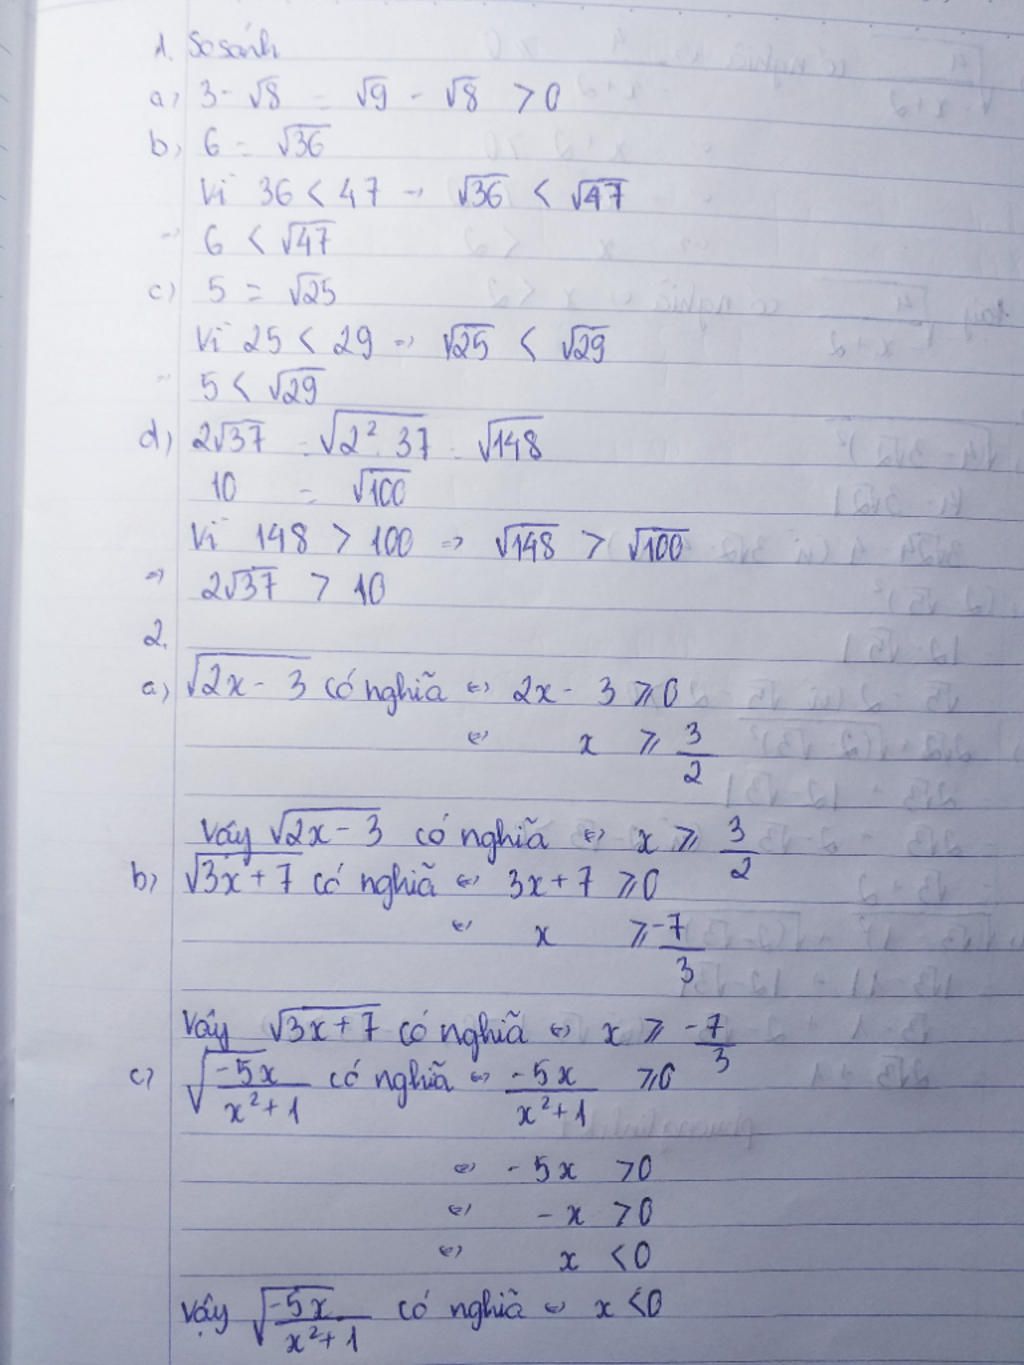 1. So sánh
a) 3 - √8 = √9 - √8 > 0
b) 6 = √36
Vì 36 < 47 → √36 < √47
→ 6 < √47
c) 5 = √25
Vì 25 < 29 → √25 < √29
→ 5 < √29
d) 2√37 = √(2². 37) = √148
10 = √100
Vì 148 > 100 => √148 > √100
=> 2√37 > 10
2.
a) √(2x - 3) có nghĩa <=> 2x - 3 ⩾ 0
<=> x ⩾ 3/2
Vậy √(2x - 3) có nghĩa <=> x ⩾ 3/2
b) √(3x + 7) có nghĩa <=> 3x + 7 ⩾ 0
<=> x ⩾ -7/3
Vậy √(3x + 7) có nghĩa <=> x ⩾ -7/3
c) √(-5x/(x² + 1)) có nghĩa <=> -5x/(x² + 1) ⩾ 0
<=> -5x > 0
<=> -x > 0
<=> x < 0
Vậy √(-5x/(x² + 1)) có nghĩa <=> x < 0